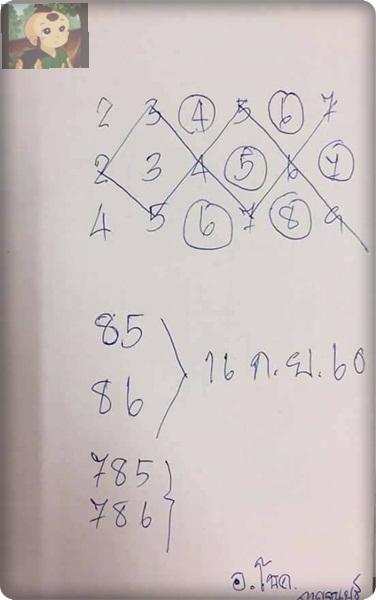 2 3 4 5 6 7
2 3 4 5 6 7
4 5 6 7 8 9
85
86
16 ก.ย. 60
785
786
อ.โชค.
กาญจนบุรี